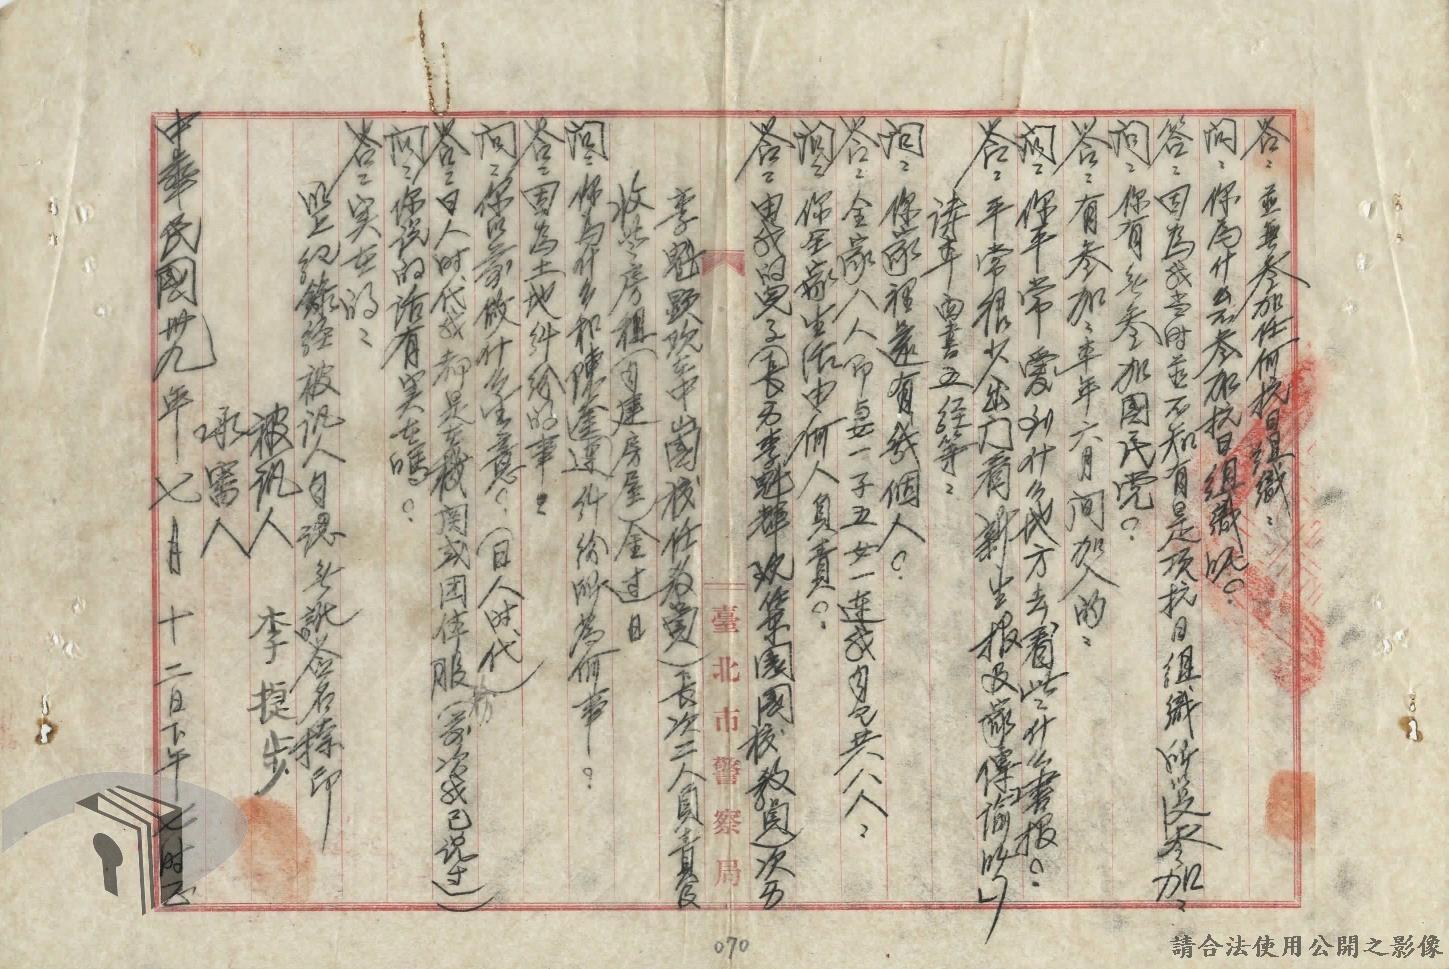 答：並無參加任何抗日組織：
問：你為什么不參加抗日組織呢？
答：因為我当时並不知有是項抗日組織所以没參加：
問：你有無參加國民党？
答：有參加：本年六月间加入的：
問：你平常愛到什么地方去看些什么書报？
答：平常很少出门看新生报及家傳諭以
詩本四書五经等：
问：你家裡還有幾個人？
答：全家八人即妻一子五女一連我自己共八人：
问：你全家生活由何人負責？
答：由我的兒子（長男李魁輝現策園國校教員）次男
李魁顕現在中山國校任教員）長次二人負責及
收些房租（自建房屋）金过日
问：你与什么和陳金連糾紛所為何事？
答：因為土地糾紛的事：
问：你以前做什么生意？（日人时代）
答：日人时代我都是在機関或团体服務（前次我已说过）
问：你说的话有実在嗎？
答：実在的：
以上纪錄经被訊人自認無訛签名捺印
被訊人 李振步
承審人
中華民國卅九年七月十二日下午七时正
臺北市警察局
070
請合法使用公開之影像